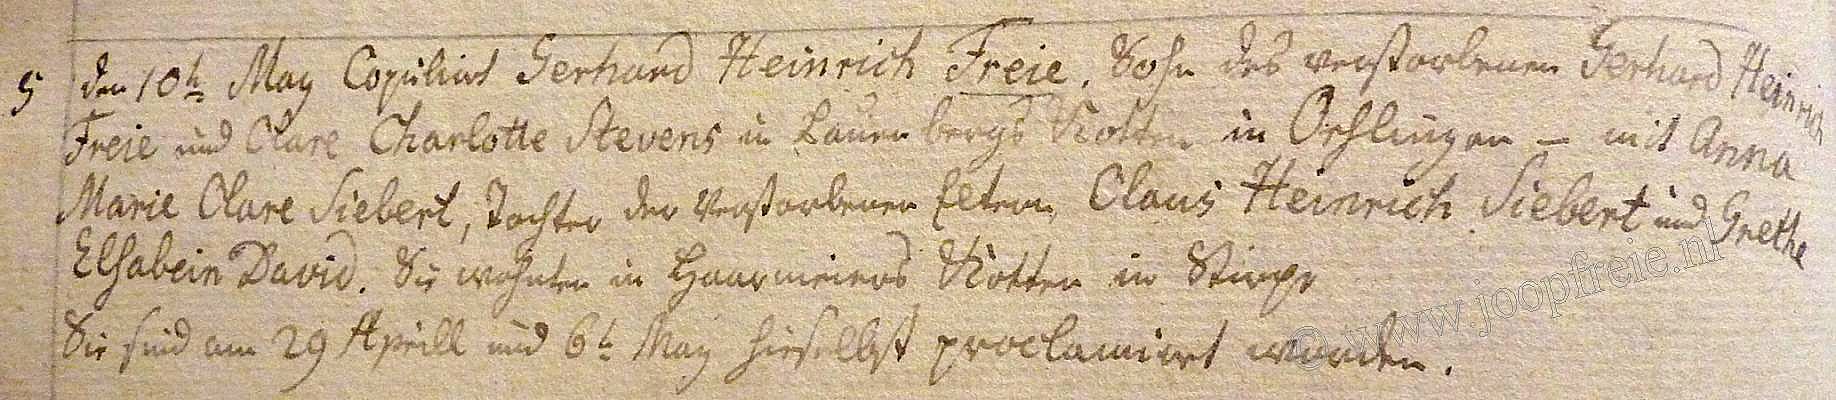 5 den 10t May Copulirt Gerhard Heinrich Freie. Sohn des verstorbenen Gerhard Heinrich
Freie und Clare Charlotte Stevens in Lauenbergs Kotten in Oehlingen – mit Anna
Marie Clare Siebert, Tochter der verstorbenen Eltern, Claus Heinrich Siebert und Grethe
Elsabein David. Sie wohnten in Haarmeiers Kotten in Stirpe
Sie sind am 29 Aprill und 6t May hieselbst proclamirt worden.
© www.joopfreie.nl